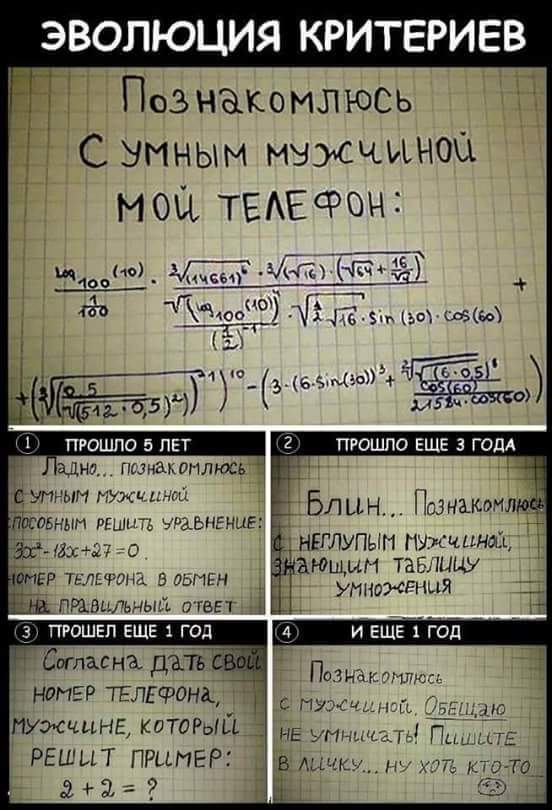 ЭВОЛЮЦИЯ КРИТЕРИЕВ
Познакомлюсь
С умным мужчиной
мой ТЕЛЕФОН:
log₁₀₀(10) / (1/100) · ∛(14661)⁶ · ∛(√16)·(√64 + 16/√4)
√(log₁₀₀(10)) / (1/2)⁻¹ · √(1/2 √16 · Sin(30)·cos(60)) +
① ПРОШЛО 5 ЛЕТ
Ладно... познакомлюсь
с умным мужчиной
способным решить уравнение:
3x² - 18x + 27 = 0.
номер телефона в обмен
на правильный ответ
② ПРОШЛО ЕЩЕ 3 ГОДА
Блин... Познакомлюсь
с неглупым мужчиной,
знающим таблицу
умножения
③ ПРОШЕЛ ЕЩЕ 1 ГОД
Согласна дать свой
номер телефона,
мужчине, который
решит пример:
2 + 2 = ?
④ И ЕЩЕ 1 ГОД
Познакомлюсь
с мужчиной. Обещаю
не умничать! Пишите
в личку... ну хоть кто-то